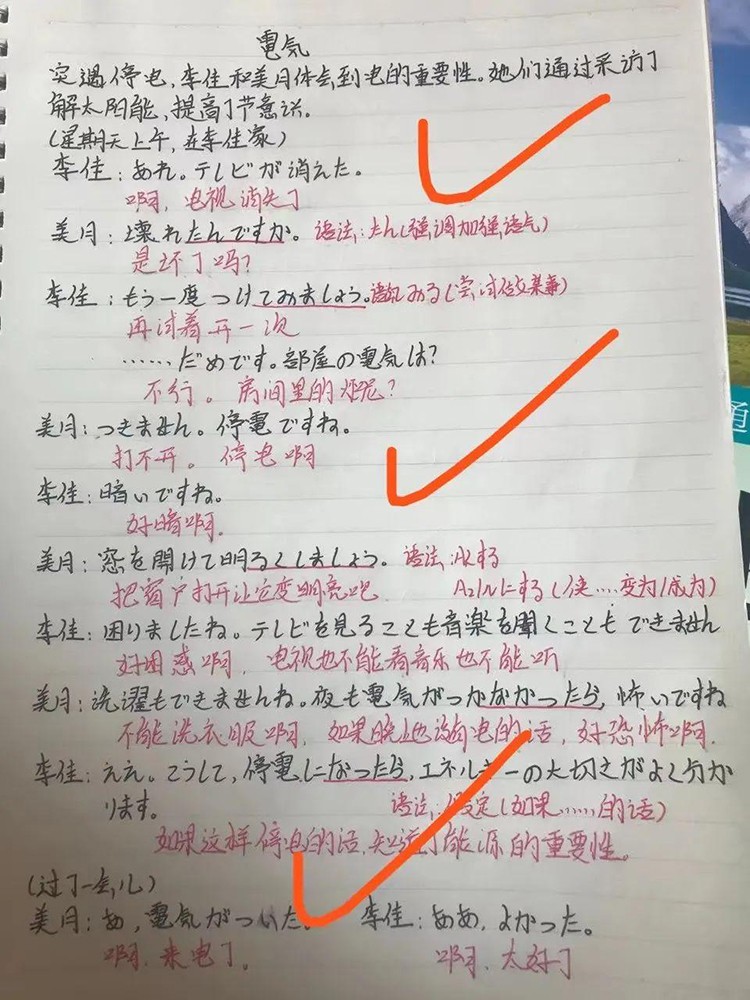 電気
突遇停电,李佳和美月体会到电的重要性。她们通过采访了
解太阳能,提高了节意识。
(星期天上午,在李佳家)
李佳:あれ。テレビが消えた。
啊,电视消失了
美月:壊れたんですか。语法:たん(强调加强语气)
是坏了吗?
李佳:もう一度つけてみましょう。语法みる(尝试做某事)
再试着开一次
……だめです。部屋の電気は?
不行。房间里的灯呢?
美月:つきません。停電ですね。
打不开。停电啊
李佳:暗いですね。
好暗啊.
美月:窓を開けて明るくしましょう。语法:Aくする
把窗户打开让它变明亮吧 A2/Nにする(使…变为/成为)
李佳:困りましたね。テレビを見ることも音楽を聞くこともできません
好困惑啊,电视也不能看音乐也不能听
美月:洗濯もできませんね。夜も電気がつかなかったら,怖いですね
不能洗衣服啊,如果晚上也没有电的话,好恐怖啊.
李佳:ええ。こうして,停電になったら,エネルギーの大切さがよく分か
ります。 语法:假定(如果……的话)
如果这样停电的话,知道了能源的重要性。
(过了一会儿)
美月:あ,電気がついた。 李佳:ああ,よかった。
啊.来电了。 啊.太好了
通